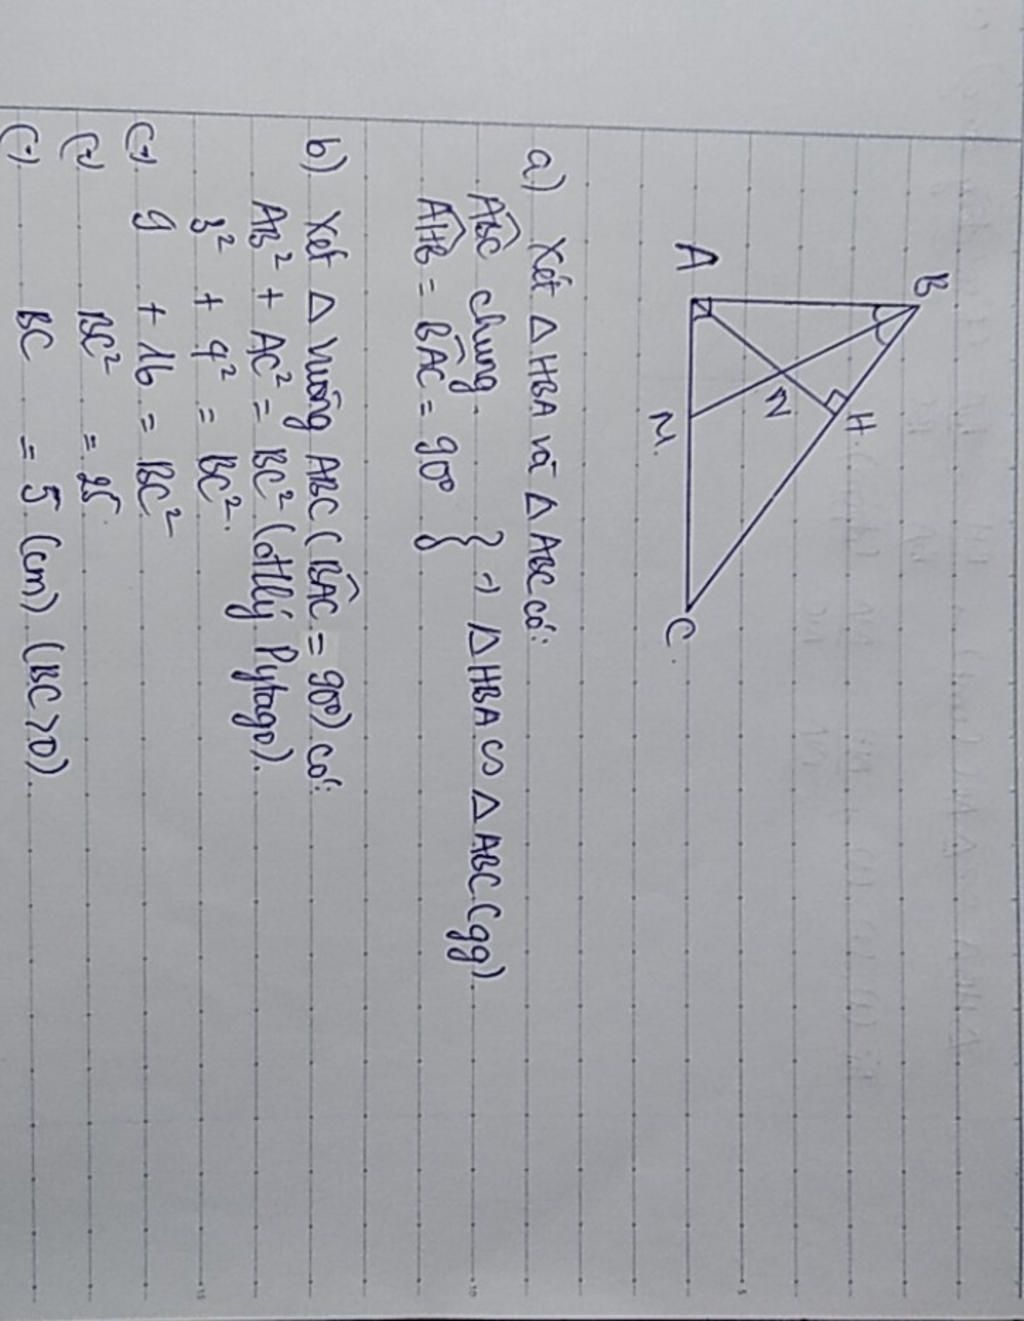 B
H
N
A
M.
C.
a) Xét △HBA và △ABC có:
ABC chung.
AHB = BAC = 90° } → △HBA ∽ △ABC (gg).
b) Xét △ vuông ABC (BAC = 90°) có:
AB² + AC² = BC² (đlý Pytago).
3² + 4² = BC².
(→) 9 + 16 = BC²
(→) BC² = 25.
(→) BC = 5 (cm) (BC > 0).